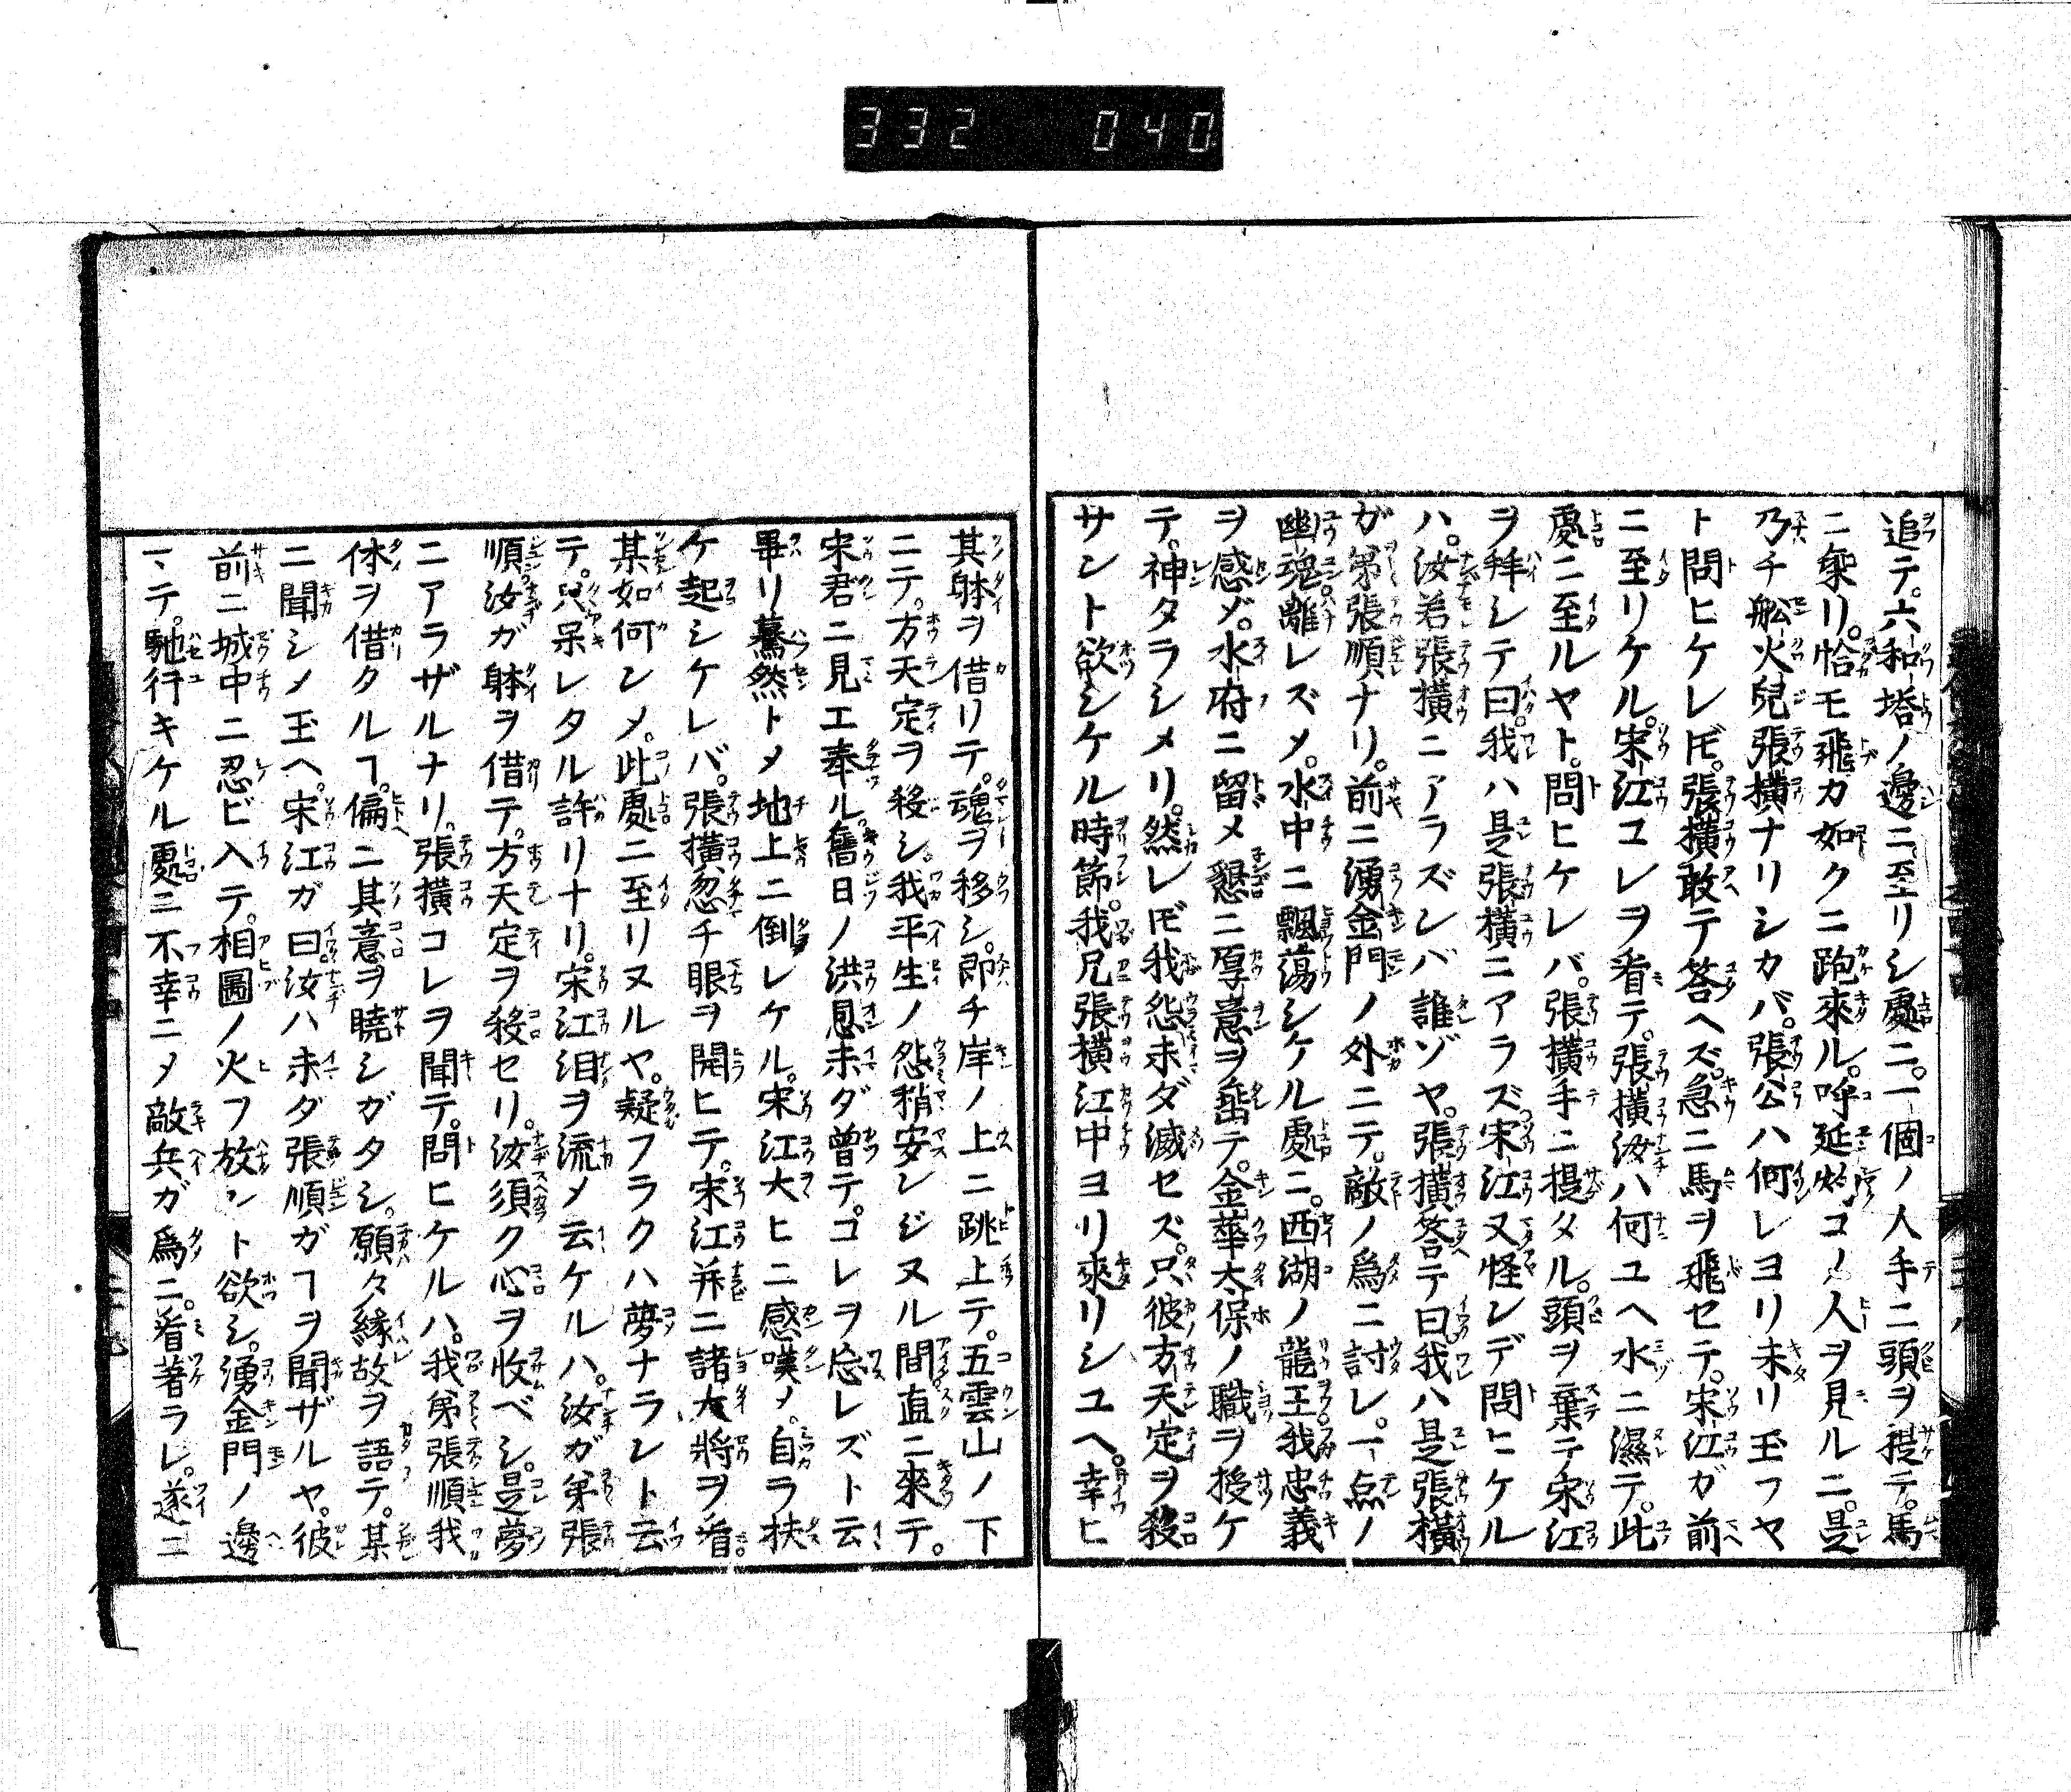 332 040
追テ。六和塔ノ邊ニ至リシ處ニ。一個ノ人手ニ頭ヲ提テ。馬
ニ乗リ。恰モ飛カ如クニ跑來ル。呼延灼コノ人ヲ見ルニ。是
乃チ舩火兒張横ナリシカバ。張公ハ何レヨリ來リ玉フヤ
ト問ヒケレ𪜈。張横敢テ答ヘズ。急ニ馬ヲ飛セテ。宋江ガ前
ニ至リケル。宋江コレヲ看テ。張横汝ハ何ユヘ水ニ濕テ。此
處ニ至ルヤト。問ヒケレバ。張横手ニ提タル。頭ヲ棄テ宋江
ヲ拜シテ曰。我ハ是張横ニアラズ。宋江又怪レデ問ヒケル
ハ。汝若張横ニアラズンバ誰ゾヤ。張横答テ曰我ハ是張横
ガ弟張順ナリ。前ニ湧金門ノ外ニテ。敵ノ爲ニ討レ。一点ノ
幽魂離レズメ。水中ニ飄蕩シケル處ニ。西湖ノ龍王我忠義
ヲ感ゾ。水府ニ留メ懇ニ厚意ヲ垂テ。金華太保ノ職ヲ授ケ
テ。神タラシメリ。然レ𪜈我怨未ダ滅セズ。只彼方天定ヲ殺
サント欲シケル時節。我兄張横江中ヨリ來リシユヘ。幸ヒ
其躰ヲ借リテ。魂ヲ移シ。即チ岸ノ上ニ跳上テ。五雲山ノ下
ニテ。方天定ヲ殺シ。我平生ノ怨稍安レジヌル間。直ニ來テ。
宋君ニ見エ奉ル。舊日ノ洪恩未ダ曾テ。コレヲ忘レズト云
畢リ驀然トメ地上ニ倒レケル。宋江大ヒニ感嘆メ。自ラ扶
ケ起シケレバ。張横忽チ眼ヲ開ヒテ。宋江并ニ諸大將ヲ看。
某如何レメ。此處ニ至リヌルヤ。疑フラクハ夢ナラレト云
テ。只呆レタル許リナリ。宋江泪ヲ流メ云ケルハ。汝ガ弟張
順汝ガ躰ヲ借テ。方天定ヲ殺セリ。汝須ク心ヲ收ベシ。是夢
ニアラザルナリ。張横コレヲ聞テ。問ヒケルハ。我弟張順我
体ヲ借タルヿ。偏ニ其意ヲ曉シガタシ。願クハ縁故ヲ語テ。某
ニ聞シメ玉ヘ。宋江ガ曰。汝ハ未ダ張順ガヿヲ聞ザルヤ。彼
前ニ城中ニ忍ビ入テ。相圖ノ火フ放ント欲シ。湧金門ノ邊
ヘテ。馳行キケル處ニ不幸ニメ敵兵ガ爲ニ。看著ラレ。遂ニ